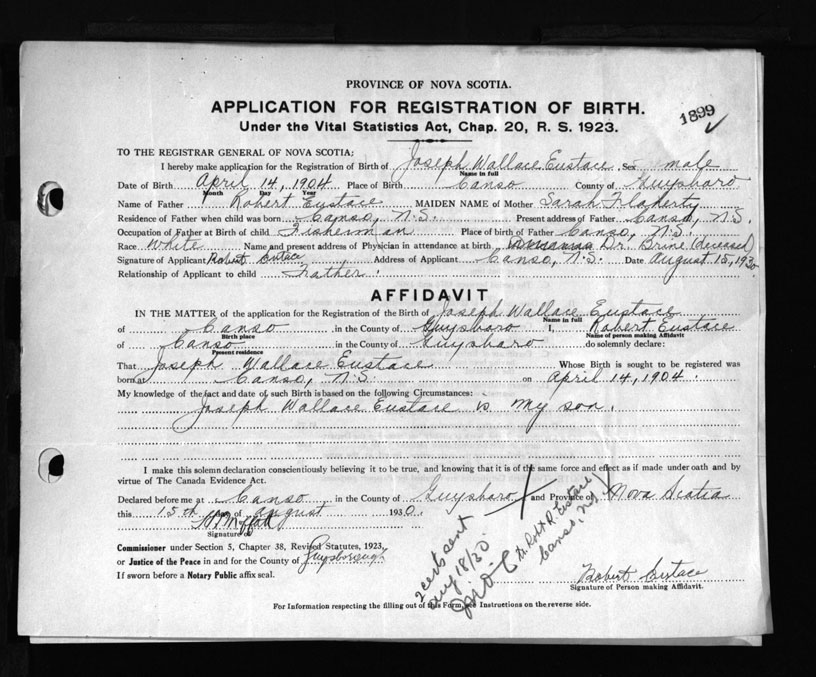 PROVINCE OF NOVA SCOTIA.
APPLICATION FOR REGISTRATION OF BIRTH.
1899
Under the Vital Statistics Act, Chap. 20, R. S. 1923.
TO THE REGISTRAR GENERAL OF NOVA SCOTIA;
I hereby make application for the Registration of Birth of Joseph Wallace Eustace Sex male
Name in full
Date of Birth April 14, 1904 Place of Birth Canso County of Guysboro
Month Day Year
Name of Father Robert Eustace MAIDEN NAME of Mother Sarah Flaherty
Residence of Father when child was born Canso, N.S. Present address of Father Canso, N.S.
Occupation of Father at Birth of child Fisherman Place of birth of Father Canso, N.S.
Race White Name and present address of Physician in attendance at birth Dr. Brine (deceased)
Signature of Applicant Robert Eustace Address of Applicant Canso, N.S. Date August 15, 1930
Relationship of Applicant to child Father.
AFFIDAVIT
IN THE MATTER of the application for the Registration of the Birth of Joseph Wallace Eustace
Name in full
of Canso in the County of Guysboro I, Robert Eustace
Birth place Name of person making Affidavit
of Canso in the County of Guysboro do solemnly declare:
Present residence
That Joseph Wallace Eustace Whose Birth is sought to be registered was
born at Canso, N.S. on April 14, 1904.
My knowledge of the fact and date of such Birth is based on the following Circumstances:
Joseph Wallace Eustace is my son.
I make this solemn declaration conscientiously believing it to be true, and knowing that it is of the same force and effect as if made under oath and by
virtue of The Canada Evidence Act.
Declared before me at Canso in the County of Guysboro and Province of Nova Scotia
this 15th day of August 1930.
Signature of
Commissioner under Section 5, Chapter 38, Revised Statutes, 1923,
or Justice of the Peace in and for the County of Guysborough
If sworn before a Notary Public affix seal.
2 certs sent
Aug 18/30
Mr. Robt R. Eustace
Canso, N.S.
Robert Eustace
Signature of Person making Affidavit.
For Information respecting the filling out of this Form, see Instructions on the reverse side.